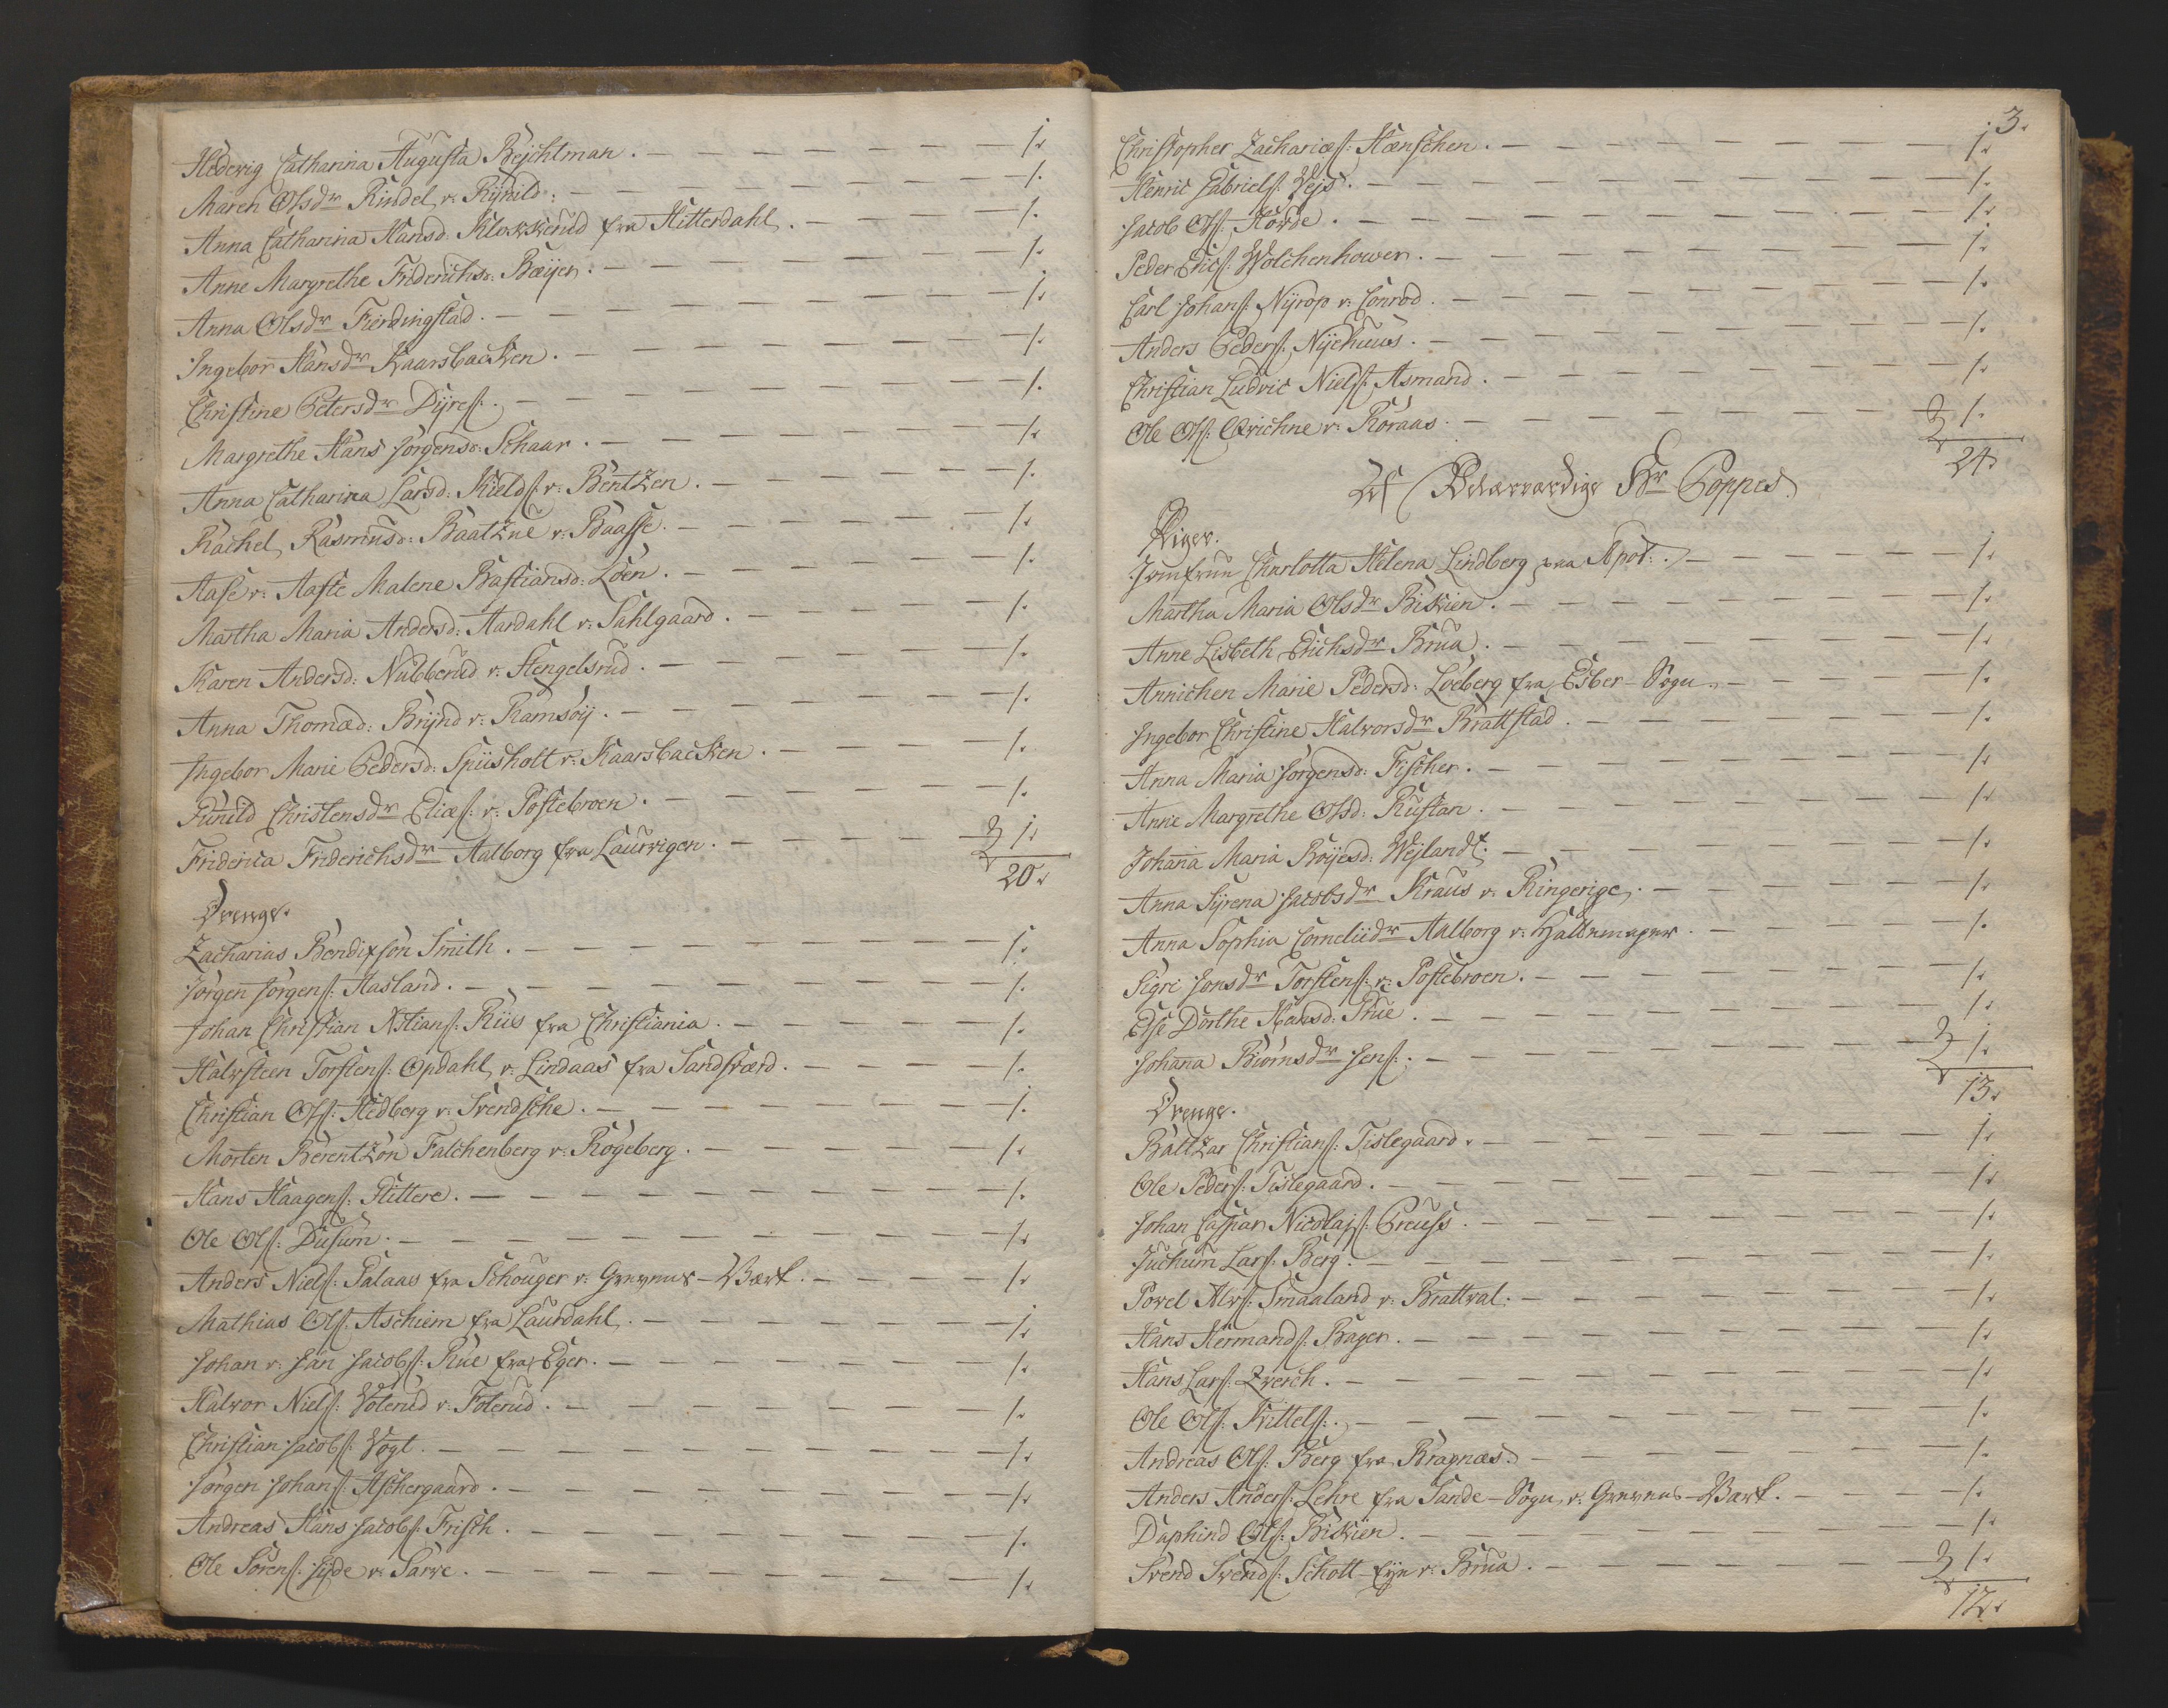 Hedevig Catharina Augusta Bejchtman. — 1.
Maren Olsdr Rindel, v: Rijmild: — 1.
Anna Catharina Hansd: Klokkerud fra Hitterdahl. — 1.
Anne Margrethe Friderichsd: Bæijer. — 1.
Anna Olsdr Fierdingstad. — 1.
Ingebor Hansdr Kaarsbacken. — 1.
Christine Petersdr Dijres: — 1.
Margrethe Hans Jørgensd: Schaar. — 1.
Anna Catharina Larsd: Kields: v: Bentzen. — 1.
Rachel Rasmusd: Baatzue v: Baasse. — 1.
Aase v: Aaste Malene Bastiansd: Loen. — 1.
Martha Maria Andersd: Aardahl v: Sahlgaard. — 1.
Karen Andersd: Nubberud v: Stengelsrud. — 1.
Anna Thomæd: Brijnd v: Ramsøij. — 1.
Ingebor Marie Pedersd: Spiisholt v: Kaarsbacken. — 1.
Gunild Christensdr Elias: v: Postebroen. — 1.
Friderica Friderichsdr Aalborg fra Laurvigen. — 1.
20.
Drenge.
Zacharias Bendixsøn Smith. — 1.
Jørgen Jørgens: Aasland. — 1.
Johan Christian Nstians: Riis fra Christiania. — 1.
Halvsteen Torstens: Opdahl, v: Lindaas fra Sandsværd. — 1.
Christian Ols: Hedberg v: Svendsche. — 1.
Morten Berentzøn Falchenberg v: Rogeberg. — 1.
Hans Haagens: Flittere. — 1.
Ole Ols: Dusum. — 1.
Anders Niels: Palaas fra Schouger v: Grevens-Værk. — 1.
Mathias Ols: Aschiem fra Laurdahl. — 1.
Johan v: Jan Jacobs: Rue fra Eger. — 1.
Halvor Niels: Volerud v: Folerud. — 1.
Christian Jacobs: Vogt. — 1.
Jørgen Johans: Aschergaard. — 1.
Andreas Hans Jacobs: Frisch. — 1.
Ole Sørens: Hyde v: Sarve. — 1.
3.
Christopher Zacharias: Hænschen. — 1.
Henric Gabriels: Vejs. — 1.
Jacob Ols: Hovde. — 1.
Peder Erics: Wolchenhower. — 1.
Carl Johans: Nijrop v: Conrod. — 1.
Anders Peders: Nijehuus. — 1.
Christian Ludvic Niels: Asmand. — 1.
Ole Ols: Qvichne v: Roraas. — 1.
24.
Af Velærværdige Hr Poppes
Piger.
Jomfrue Charlotta Helena Lindberg paa Apot: — 1.
Martha Maria Olsdr Biskien. — 1.
Anne Lisbeth Erichsdr Brua. — 1.
Annichen Marie Pedersd: Løeberg fra Esber-Sogn. — 1.
Ingebor Christine Halvorsdr Brattstad. — 1.
Anna Maria Jørgensd: Fischer. — 1.
Anne Margrethe Olsd: Rustan. — 1.
Johanna Maria Bøijesd: Wejlandt. — 1.
Anna Sijrena Jacobsdr Kraus v: Ringerige. — 1.
Anna Sophia Corneliidr Aalborg v: Hattemager. — 1.
Sigri Jonsdr Torstens: v: Postebroen. — 1.
Else Dorthe Hansd: Thue. — 1.
Johanna Biørnsdr Jens: — 1.
13.
Drenge.
Baltzar Christians: Tislegaard. — 1.
Ole Peders: Tislegaard. — 1.
Johan Caspar Nicolajs: Preuss. — 1.
Juchum Lars: Berg. — 1.
Povel Alvs: Smaaland v: Brattval. — 1.
Hans Hermands: Bager. — 1.
Hans Lars: Zverch. — 1.
Ole Ols: Kittels: — 1.
Andreas Ols: Berg fra Bragnæs. — 1.
Anders Anders: Lehre fra Sande-Sogn v: Grevens-Værk. — 1.
Daphind Ols: Biskien. — 1.
Svend Svends: Schott-Eije v: Brua. — 1.
12.